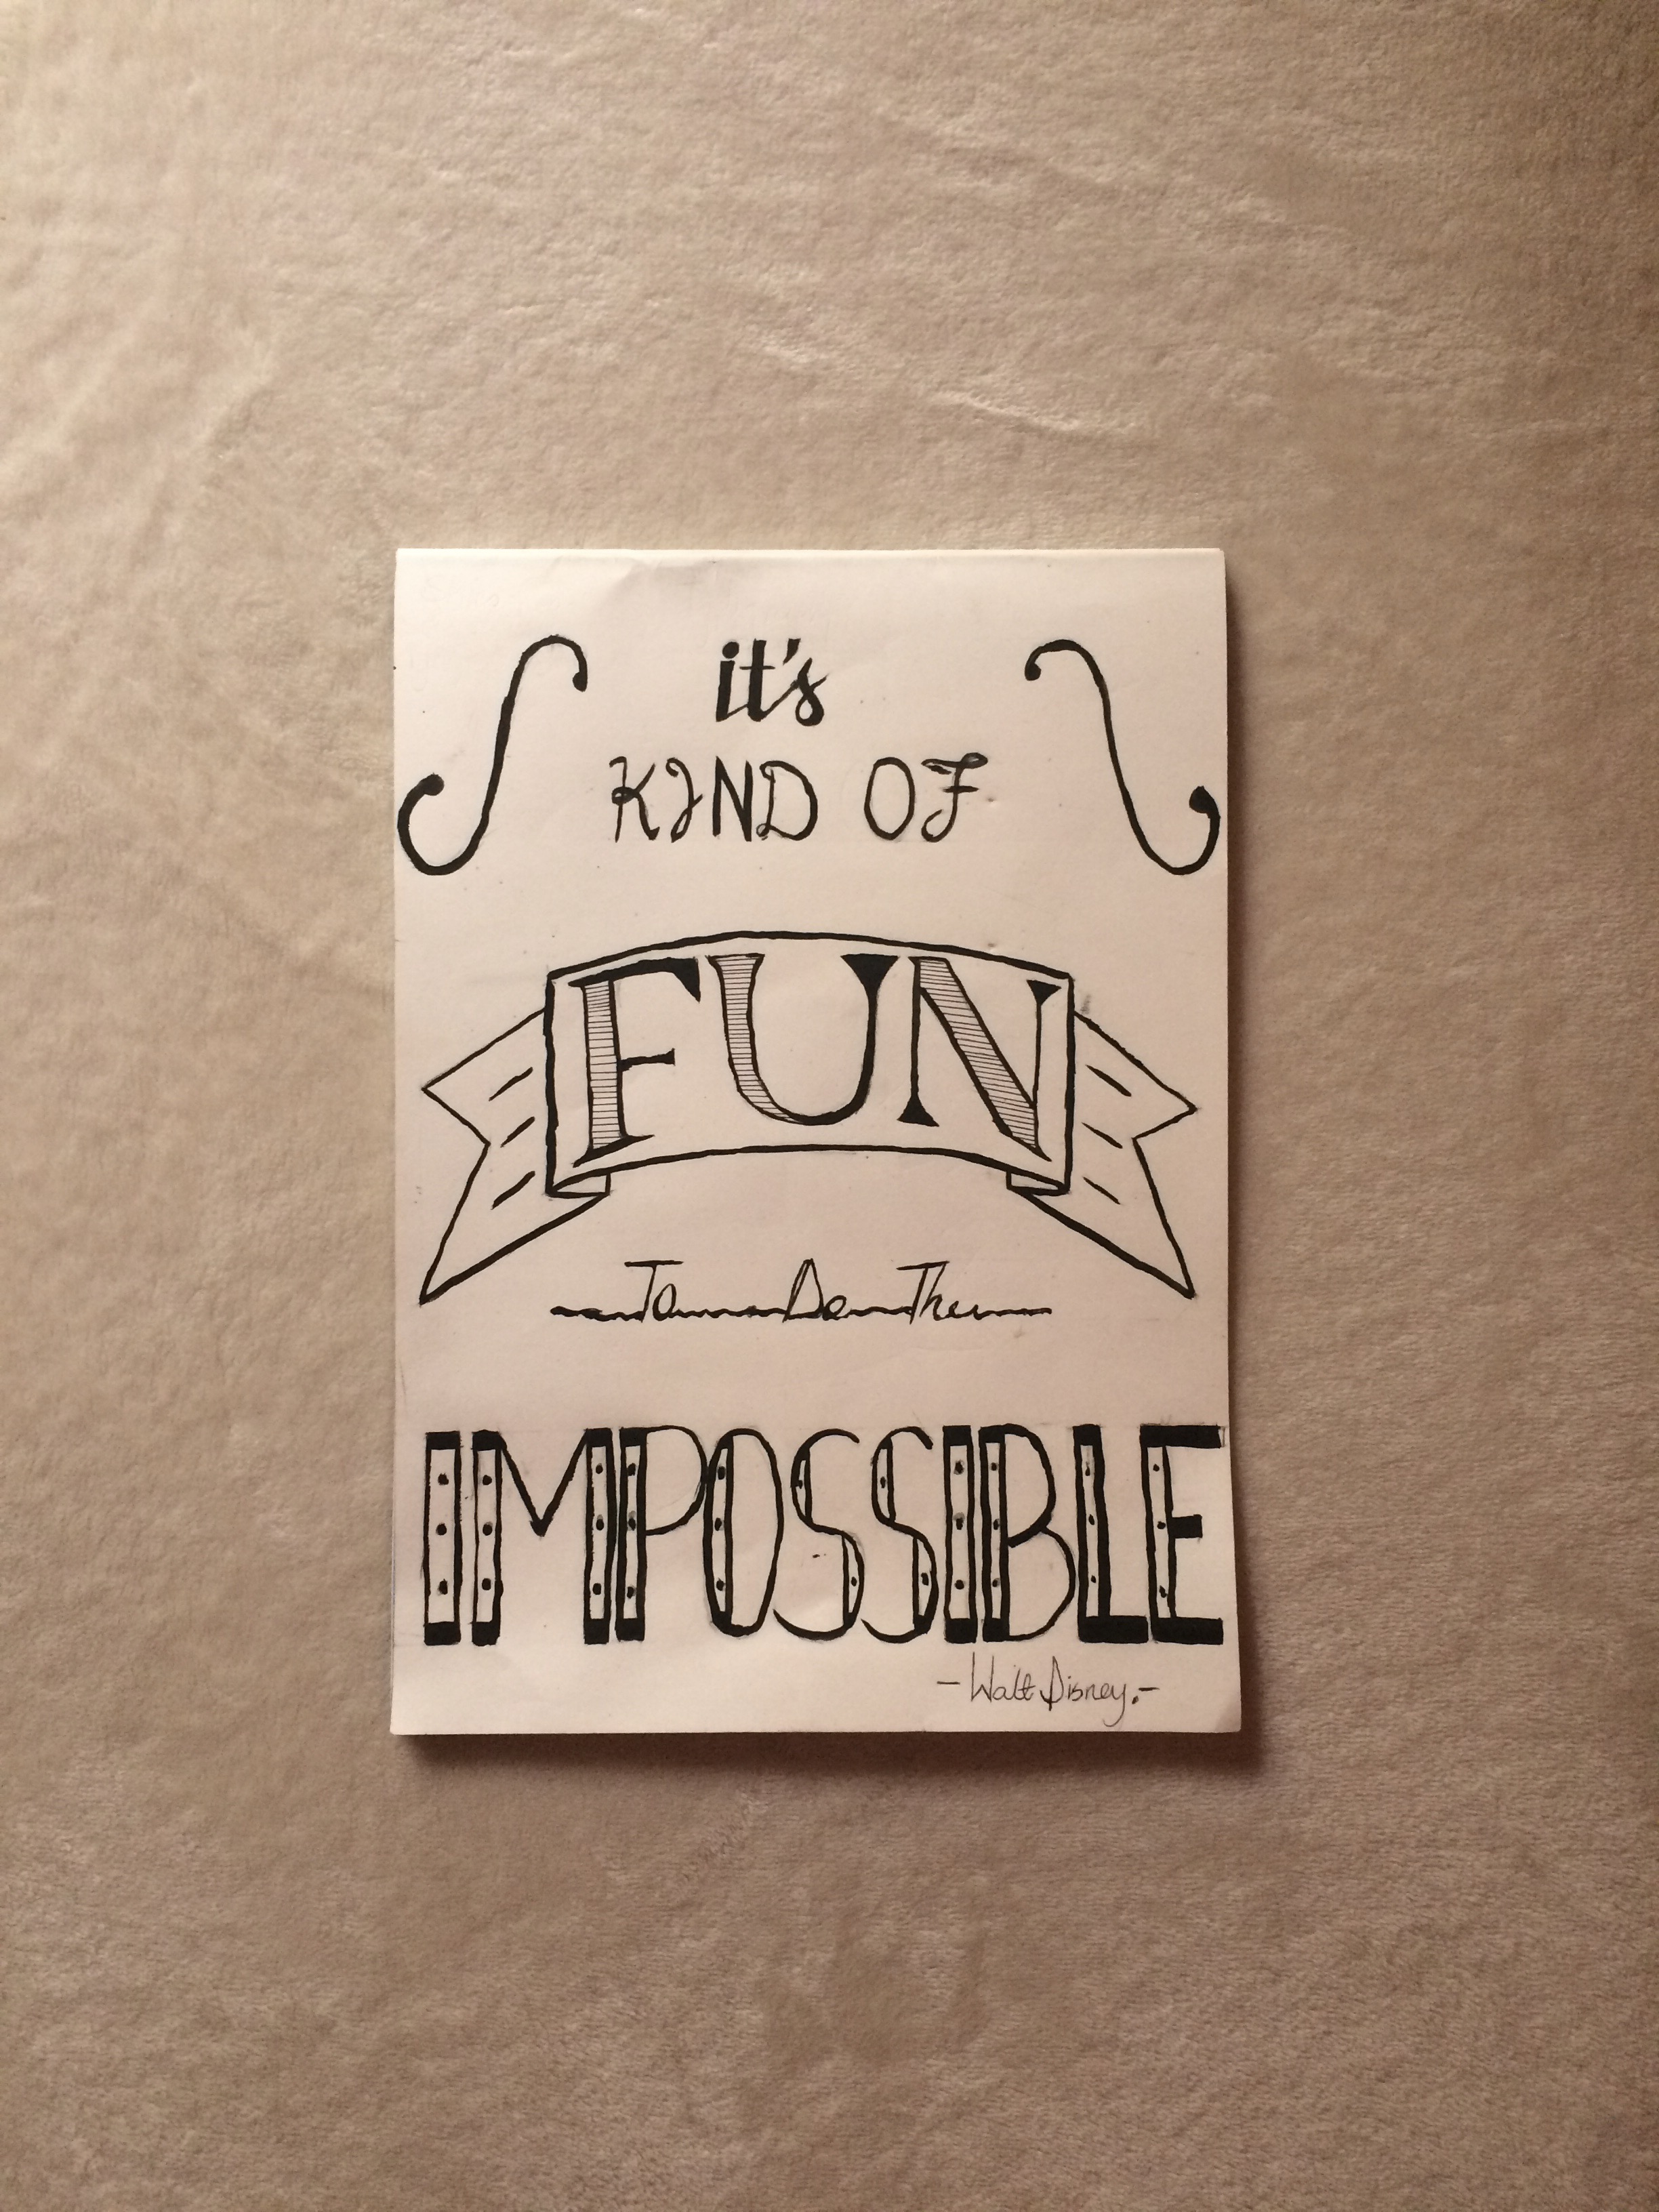 it's
KIND OF
FUN
To Do The
IMPOSSIBLE
- Walt Disney. -